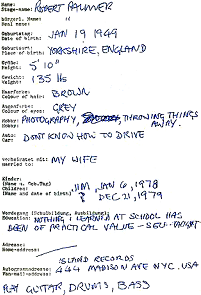 Name:
Stage-name: ROBERT PALMER
bürgerl. Name:
Real name: "
Geburtstag:
Date of birth: JAN 19 1949
Geburtsort:
Place of birth: YORKSHIRE, ENGLAND
Größe:
Height: 5' 10"
Gewicht:
Weight: 135 lbs
Haarfarbe:
Colour of hair: BROWN
Augenfarbe:
Colour of eyes: GREY
Hobby:
Hobby: PHOTOGRAPHY, THROWING THINGS AWAY.
Auto:
Car: DONT KNOW HOW TO DRIVE
verheiratet mit:
married to: MY WIFE
Kinder:
(Name u. Geb.Tag)
Children:
(Name and date of birth) JIM, JAN 6, 1978
DEC 21, 1979
(Schulbildung, Ausbildung)
Education NOTHING I LEARNED AT SCHOOL HAS
BEEN OF PRACTICAL VALUE - SELF-TAUGHT
Adresse:
Home-address:
ISLAND RECORDS
Autogrammadresse:
Fan-mail-address: 444 MADISON AVE NYC. USA
PLAY GUITAR, DRUMS, BASS